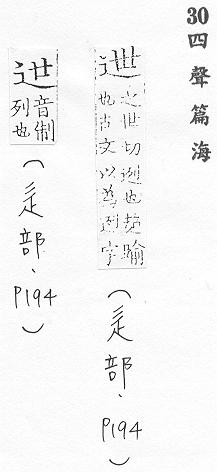 30四聲篇海
迣 之世切迾也超踰
也古文以為迾字
（辵部、P194）
迣 音制
列也
（辵部、P194）